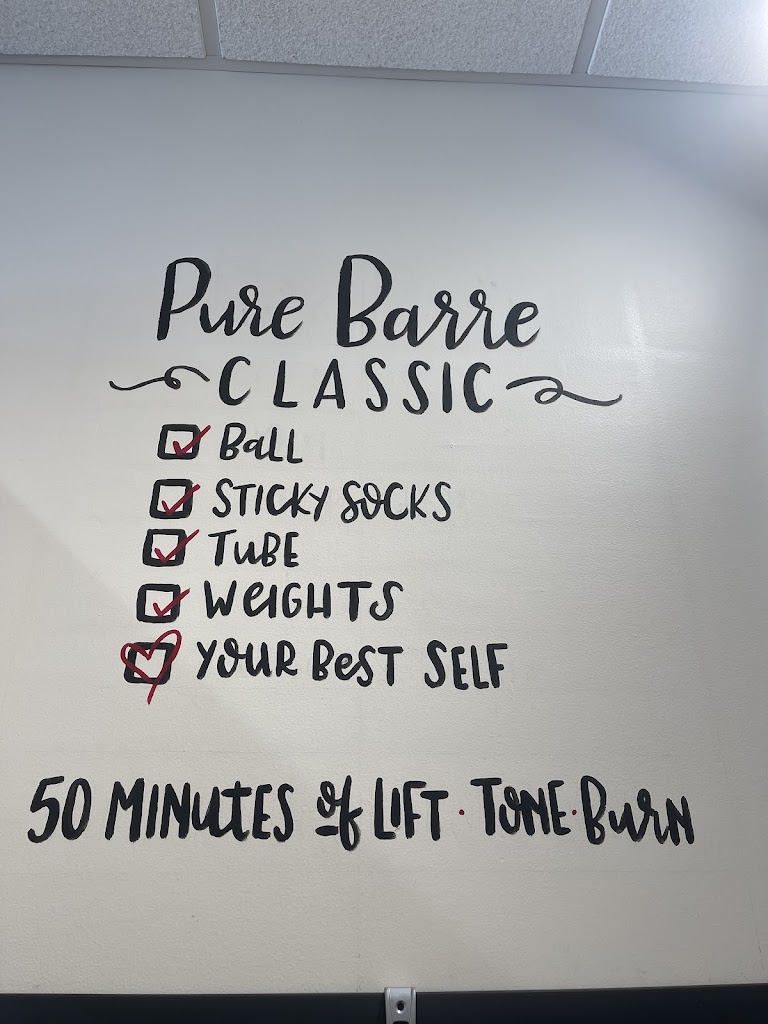 Pure Barre
CLASSIC
BALL
STICKY SOCKS
TUBE
WEIGHTS
YOUR BEST SELF
50 MINUTES of LIFT · TONE · BURN